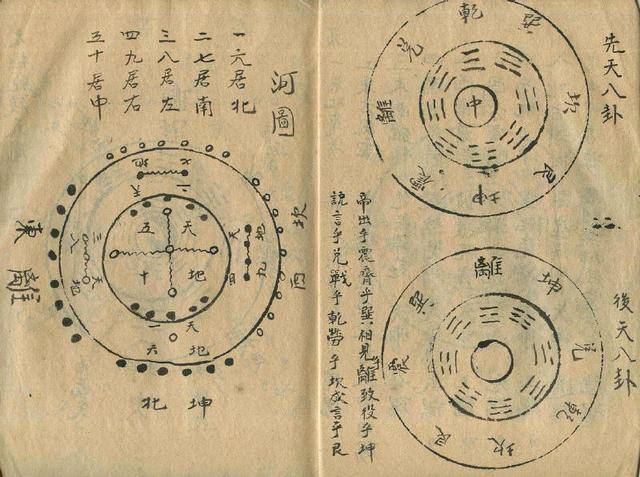 先天八卦
乾
巽
坎
艮
坤
離
兌
中
後天八卦
離
坤
兌
乾
坎
艮
震
巽
帝出乎震齊乎巽相見乎離致役乎坤
說言乎兌戰乎乾勞乎坎成言乎艮
河圖
一六居北
二七居南
三八居左
四九居右
五十居中
地七
天二
坎西
地四
天九
天五
地十
天三
地八
東離
天一
地六
北坤